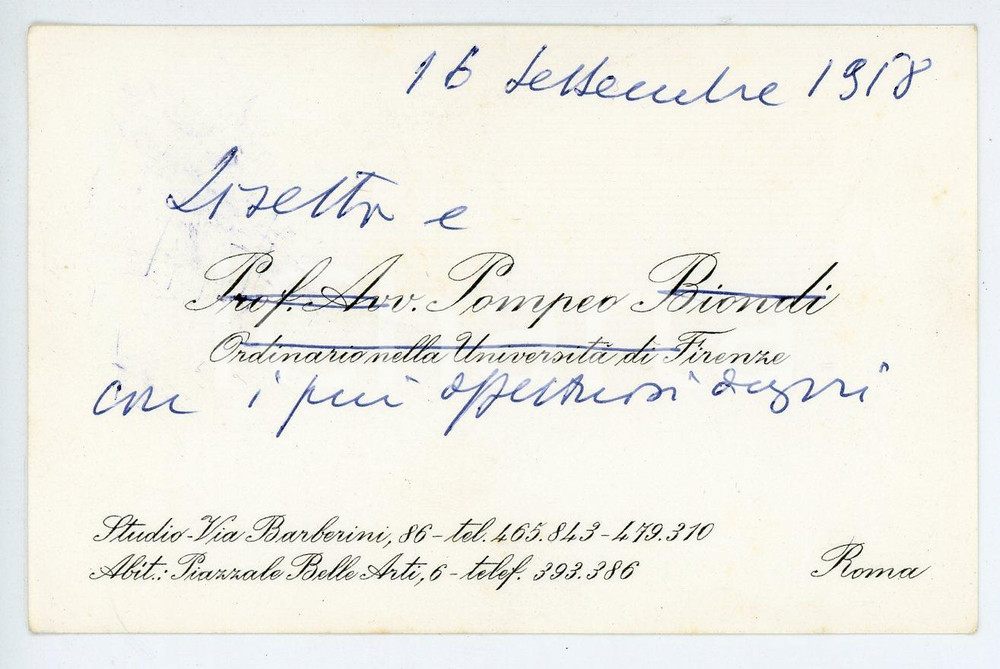 16 settembre 1958
Lisetta e
Prof. Avv. Pompeo Biondi
Ordinario nella Università di Firenze
con i più affettuosi auguri
Studio-Via Barberini, 86 - tel. 465.843 - 479.310
Abit.: Piazzale Belle Arti, 6 - telef. 393.386
Roma